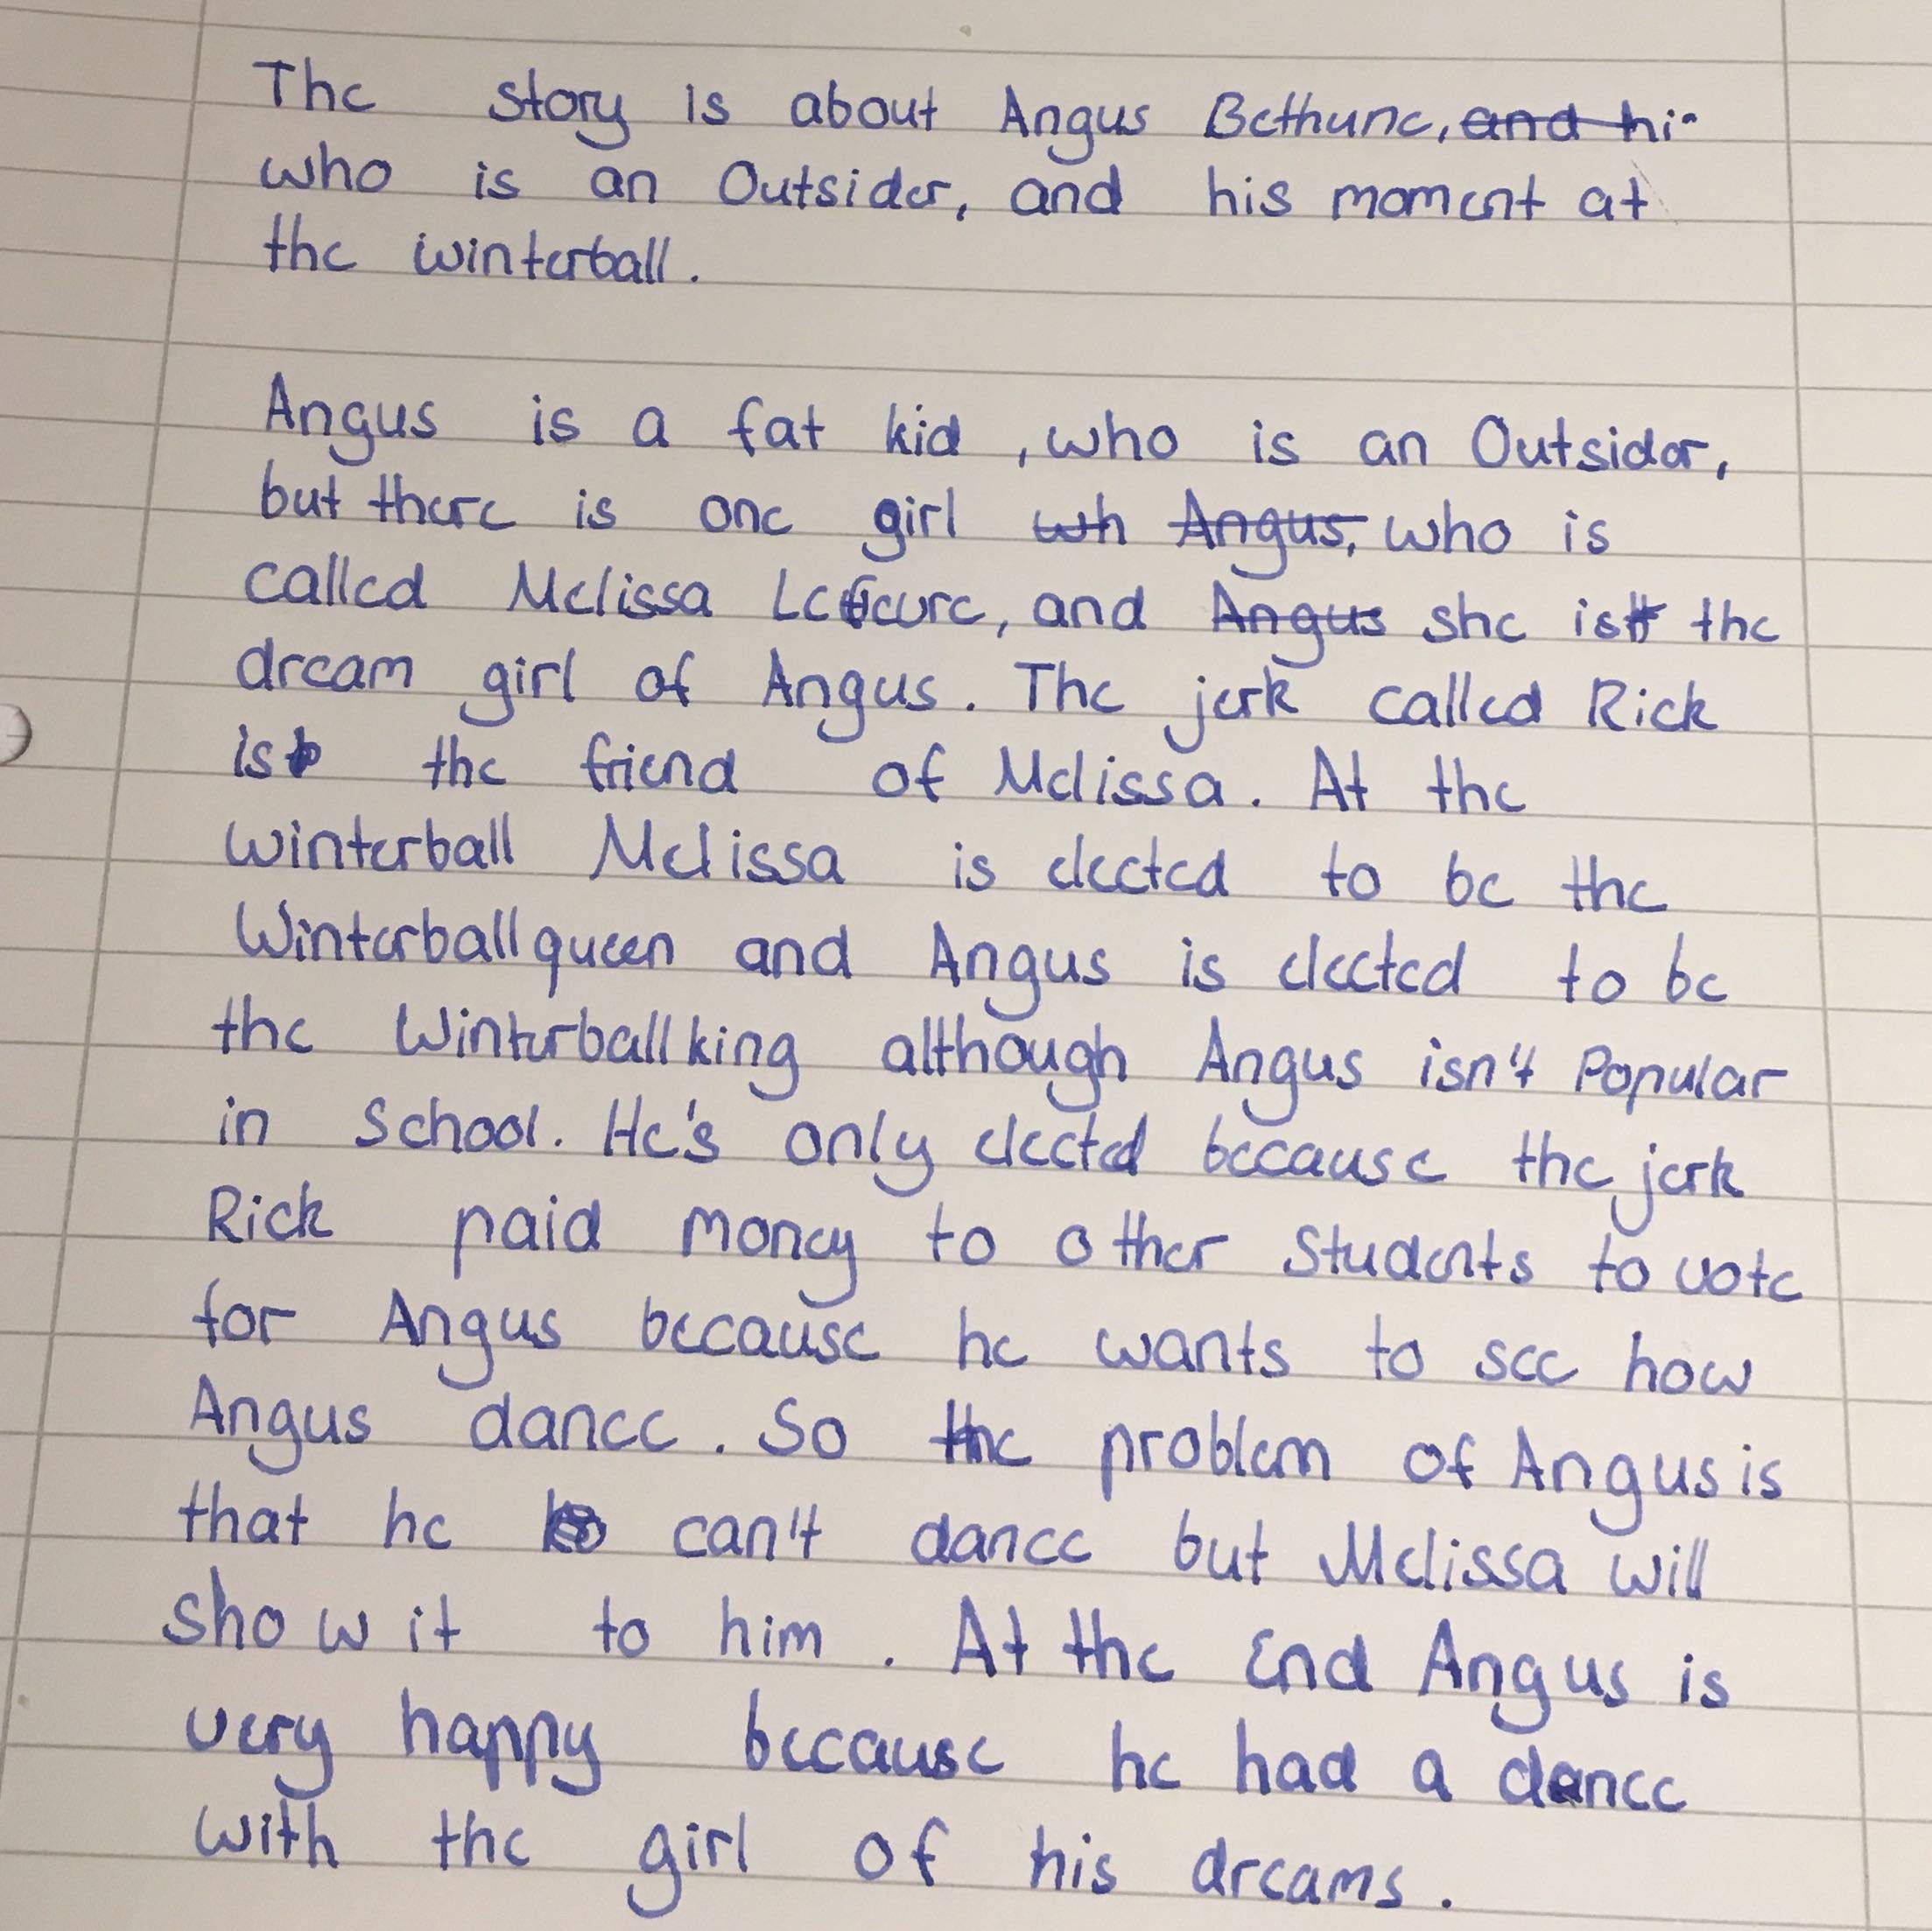 The story is about Angus Bethune, and hi
who is an Outsider, and his moment at
the winterball.
Angus is a fat kid , who is an Outsider,
but there is one girl wh Angus, who is
called Melissa Lefevre, and Angus she is the
dream girl of Angus. The jerk called Rick
is the friend of Melissa. At the
winterball Melissa is elected to be the
Winterballqueen and Angus is elected to be
the Winterballking although Angus isn't Popular
in School. He's only elected because the jerk
Rick paid money to other Students to vote
for Angus because he wants to see how
Angus dance. So the problem of Angus is
that he can't dance but Melissa will
show it to him. At the End Angus is
very happy because he had a dance
with the girl of his dreams.